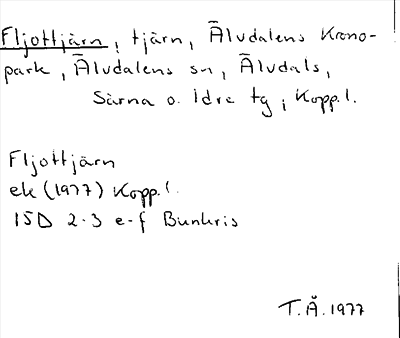 Fljottjärn, tjärn, Älvdalens Krono-
park, Älvdalens sn, Älvdals,
Särna o. Idre tg, Kopp.l.
Fljottjärn
ek (1977) Kopp.l.
15D 2-3 e-f Bunkris
T.Å.1977